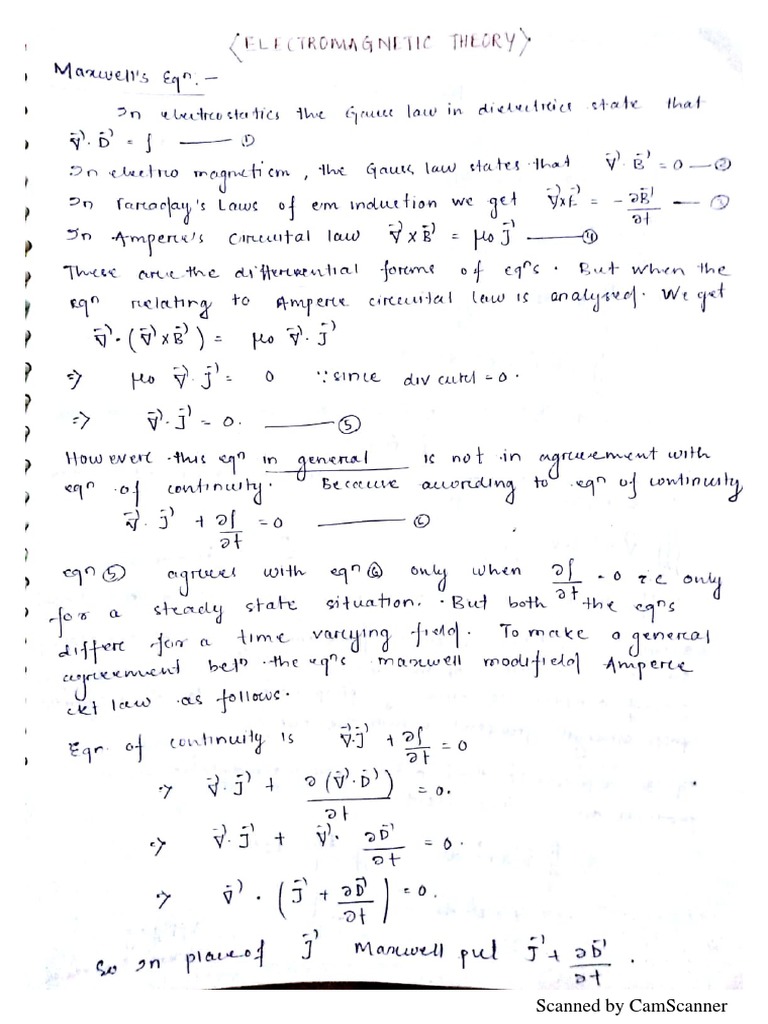 <ELECTROMAGNETIC THEORY>
Maxwell's Eqn. –
In electrostatics the Gauss law in dielectrics state that
∇⃗·D⃗ = ρ —— ①
In electro magnetism, the Gauss law states that ∇⃗·B⃗ = 0 — ②
In Faraday's Laws of em induction we get ∇⃗×E⃗ = -∂B⃗/∂t — ③
In Ampere's circuital law ∇⃗×B⃗ = μ₀ J⃗ —— ④
These are the differential forms of eqns. But when the
eqn relating to Ampere circuital law is analysed. We get
∇⃗·(∇⃗×B⃗) = μ₀ ∇⃗·J⃗
⇒ μ₀ ∇⃗·J⃗ = 0 ∵ since div curl = 0.
⇒ ∇⃗·J⃗ = 0. —— ⑤
However this eqn in general is not in agreement with
eqn of continuity. Because according to eqn of continuity
∇⃗·J⃗ + ∂ρ/∂t = 0 —— ⑥
eqn ⑤ agrees with eqn ⑥ only when ∂ρ/∂t = 0 i.e only
for a steady state situation. But both the eqns
differ for a time varying field. To make a general
agreement betn the eqns maxwell modified Ampere
ckt law as follows.
Eqn. of continuity is ∇⃗·J⃗ + ∂ρ/∂t = 0
⇒ ∇⃗·J⃗ + ∂(∇⃗·D⃗)/∂t = 0.
⇒ ∇⃗·J⃗ + ∇⃗·∂D⃗/∂t = 0.
⇒ ∇⃗·(J⃗ + ∂D⃗/∂t) = 0.
So in place of J⃗ Maxwell put J⃗ + ∂D⃗/∂t.
Scanned by CamScanner